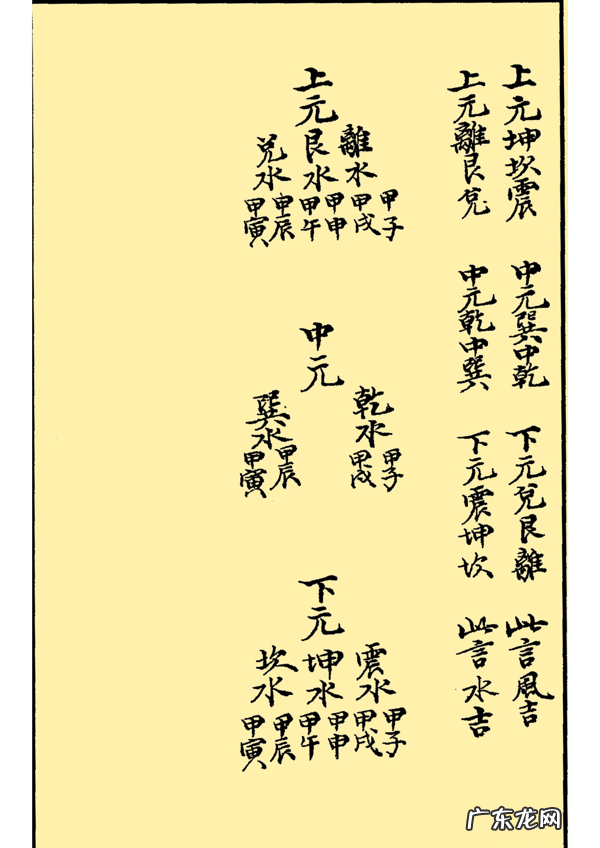 上元坤坎震　中元巽中乾　下元兌艮離　此言風吉
上元離艮兌　中元乾中巽　下元震坤坎　此言水吉
上元
離水　甲子　甲戌
艮水　甲申　甲午
兌水　甲辰　甲寅
中元
乾水　甲子　甲戌
巽水　甲辰　甲寅
下元
震水　甲子　甲戌
坤水　甲申　甲午
坎水　甲辰　甲寅
广东龙网